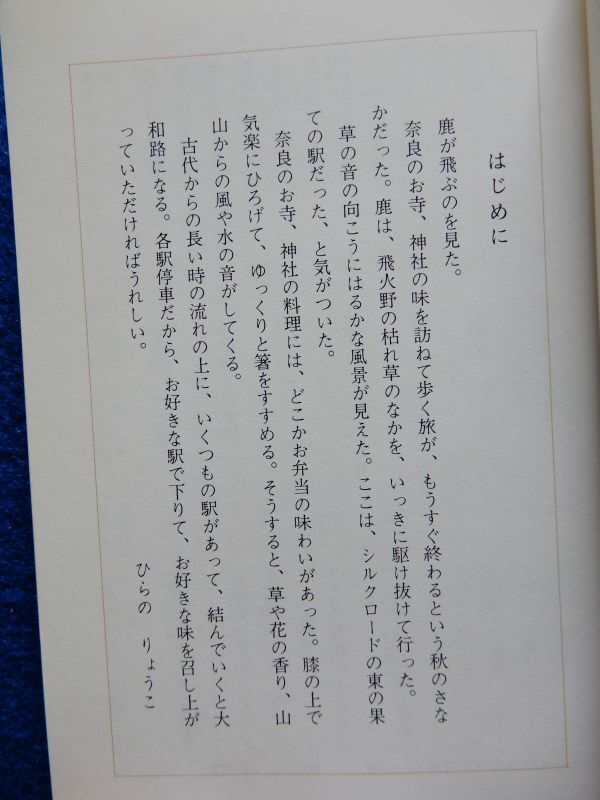 はじめに
鹿が飛ぶのを見た。
奈良のお寺、神社の味を訪ねて歩く旅が、もうすぐ終わるという秋のさな
かだった。鹿は、飛火野の枯れ草のなかを、いっきに駆け抜けて行った。
草の音の向こうにはるかな風景が見えた。ここは、シルクロードの東の果
ての駅だった、と気がついた。
奈良のお寺、神社の料理には、どこかお弁当の味わいがあった。膝の上で
気楽にひろげて、ゆっくりと箸をすすめる。そうすると、草や花の香り、山
山からの風や水の音がしてくる。
古代からの長い時の流れの上に、いくつもの駅があって、結んでいくと大
和路になる。各駅停車だから、お好きな駅で下りて、お好きな味を召し上が
っていただければうれしい。
ひらの りょうこ